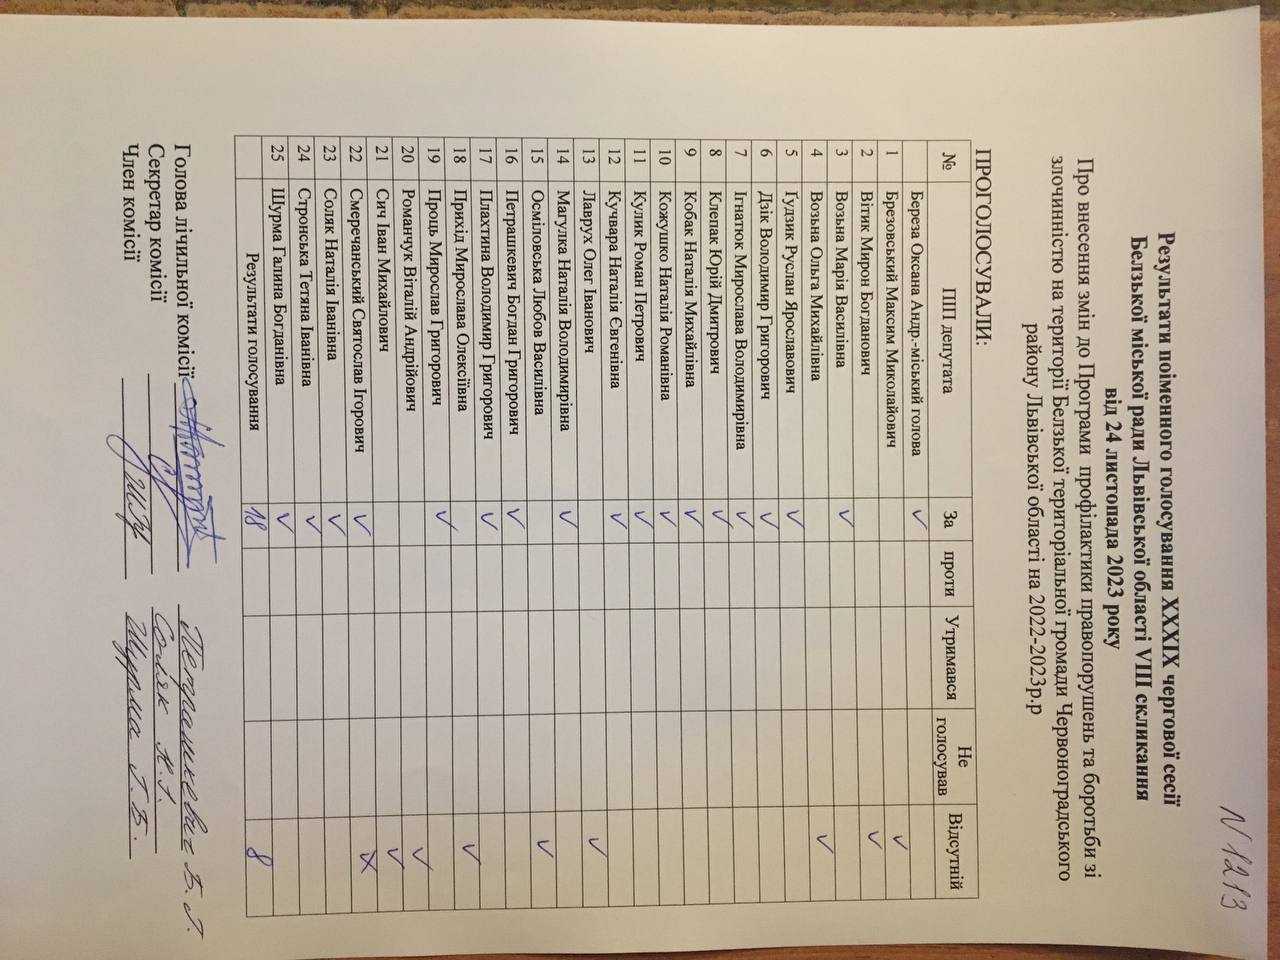 N 1213
Результати поіменного голосування XXXIX чергової сесії
Белзької міської ради Львівської області VIII скликання
від 24 листопада 2023 року
Про внесення змін до Програми профілактики правопорушень та боротьби зі
злочинністю на території Белзької територіальної громади Червоноградського
району Львівської області на 2022-2023р.р
ПРОГОЛОСУВАЛИ:
№ ПІП депутата За проти Утримався Не голосував Відсутній
Береза Оксана Андр.-міський голова ✓
1 Брезовський Максим Миколайович ✓
2 Вітик Мирон Богданович ✓
3 Возьна Марія Василівна ✓
4 Возьна Ольга Михайлівна ✓
5 Ґудзик Руслан Ярославович ✓
6 Дзік Володимир Григорович ✓
7 Ігнатюк Мирослава Володимирівна ✓
8 Клепак Юрій Дмитрович ✓
9 Кобак Наталія Михайлівна ✓
10 Кожушко Наталія Романівна ✓
11 Кулик Роман Петрович ✓
12 Кучвара Наталія Євгенівна ✓
13 Лаврух Олег Іванович ✓
14 Магулка Наталія Володимирівна ✓
15 Осміловська Любов Василівна ✓
16 Петрашкевич Богдан Григорович ✓
17 Плахтина Володимир Григорович ✓
18 Прихід Мирослава Олексіївна ✓
19 Проць Мирослав Григорович ✓
20 Романчук Віталій Андрійович ✓
21 Сич Іван Михайлович ✓
22 Смеречанський Святослав Ігорович ✓ x
23 Соляк Наталія Іванівна ✓
24 Стронська Тетяна Іванівна ✓
25 Шурма Галина Богданівна ✓
Результати голосування 18 8
Голова лічильної комісії Петрашкевич Б. Г.
Секретар комісії Соляк Н.І.
Член комісії Шурма Г.Б.